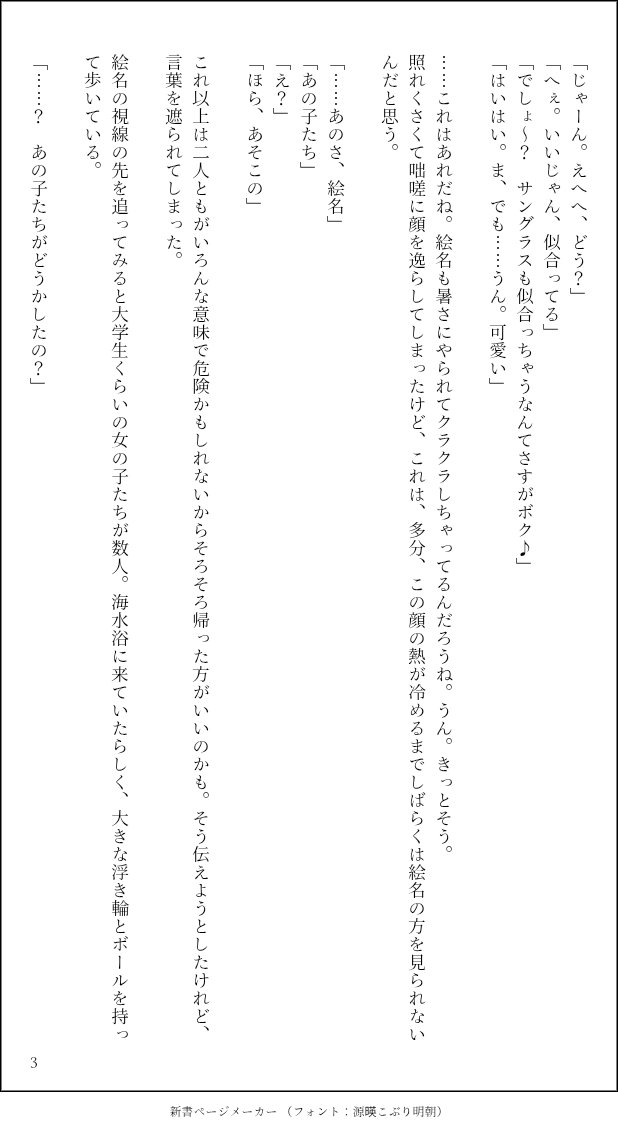 「じゃーん。えへへ、どう？」
「へぇ。いいじゃん、似合ってる」
「でしょ〜？　サングラスも似合っちゃうなんてさすがボク♪」
「はいはい。ま、でも……うん。可愛い」
……これはあれだね。絵名も暑さにやられてクラクラしちゃってるんだろうね。うん。きっとそう。
照れくさくて咄嗟に顔を逸らしてしまったけど、これは、多分、この顔の熱が冷めるまでしばらくは絵名の方を見られない
んだと思う。
「……あのさ、絵名」
「あの子たち」
「え？」
「ほら、あそこの」
これ以上は二人ともがいろんな意味で危険かもしれないからそろそろ帰った方がいいのかも。そう伝えようとしたけれど、
言葉を遮られてしまった。
絵名の視線の先を追ってみると大学生くらいの女の子たちが数人。海水浴に来ていたらしく、大きな浮き輪とボールを持っ
て歩いている。
「……？　あの子たちがどうかしたの？」
3
新書ページメーカー（フォント：源暎こぶり明朝）